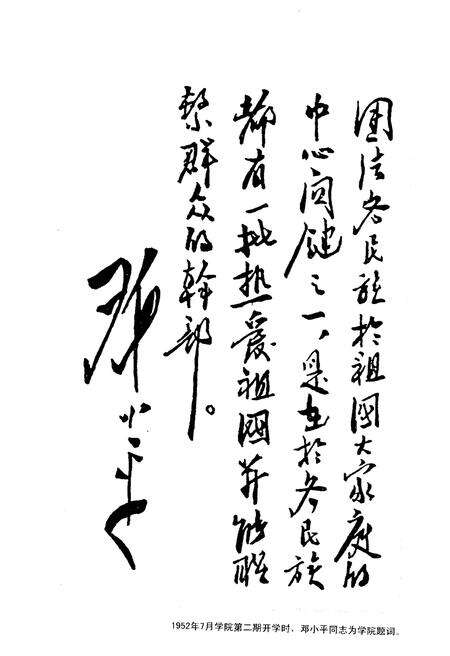 团结各民族於祖國大家庭的
中心関鍵之一，是在於各民族
都有一批热爱祖國并能联
繫群众的幹部。
邓小平
1952年7月学院第二期开学时，邓小平同志为学院题词。